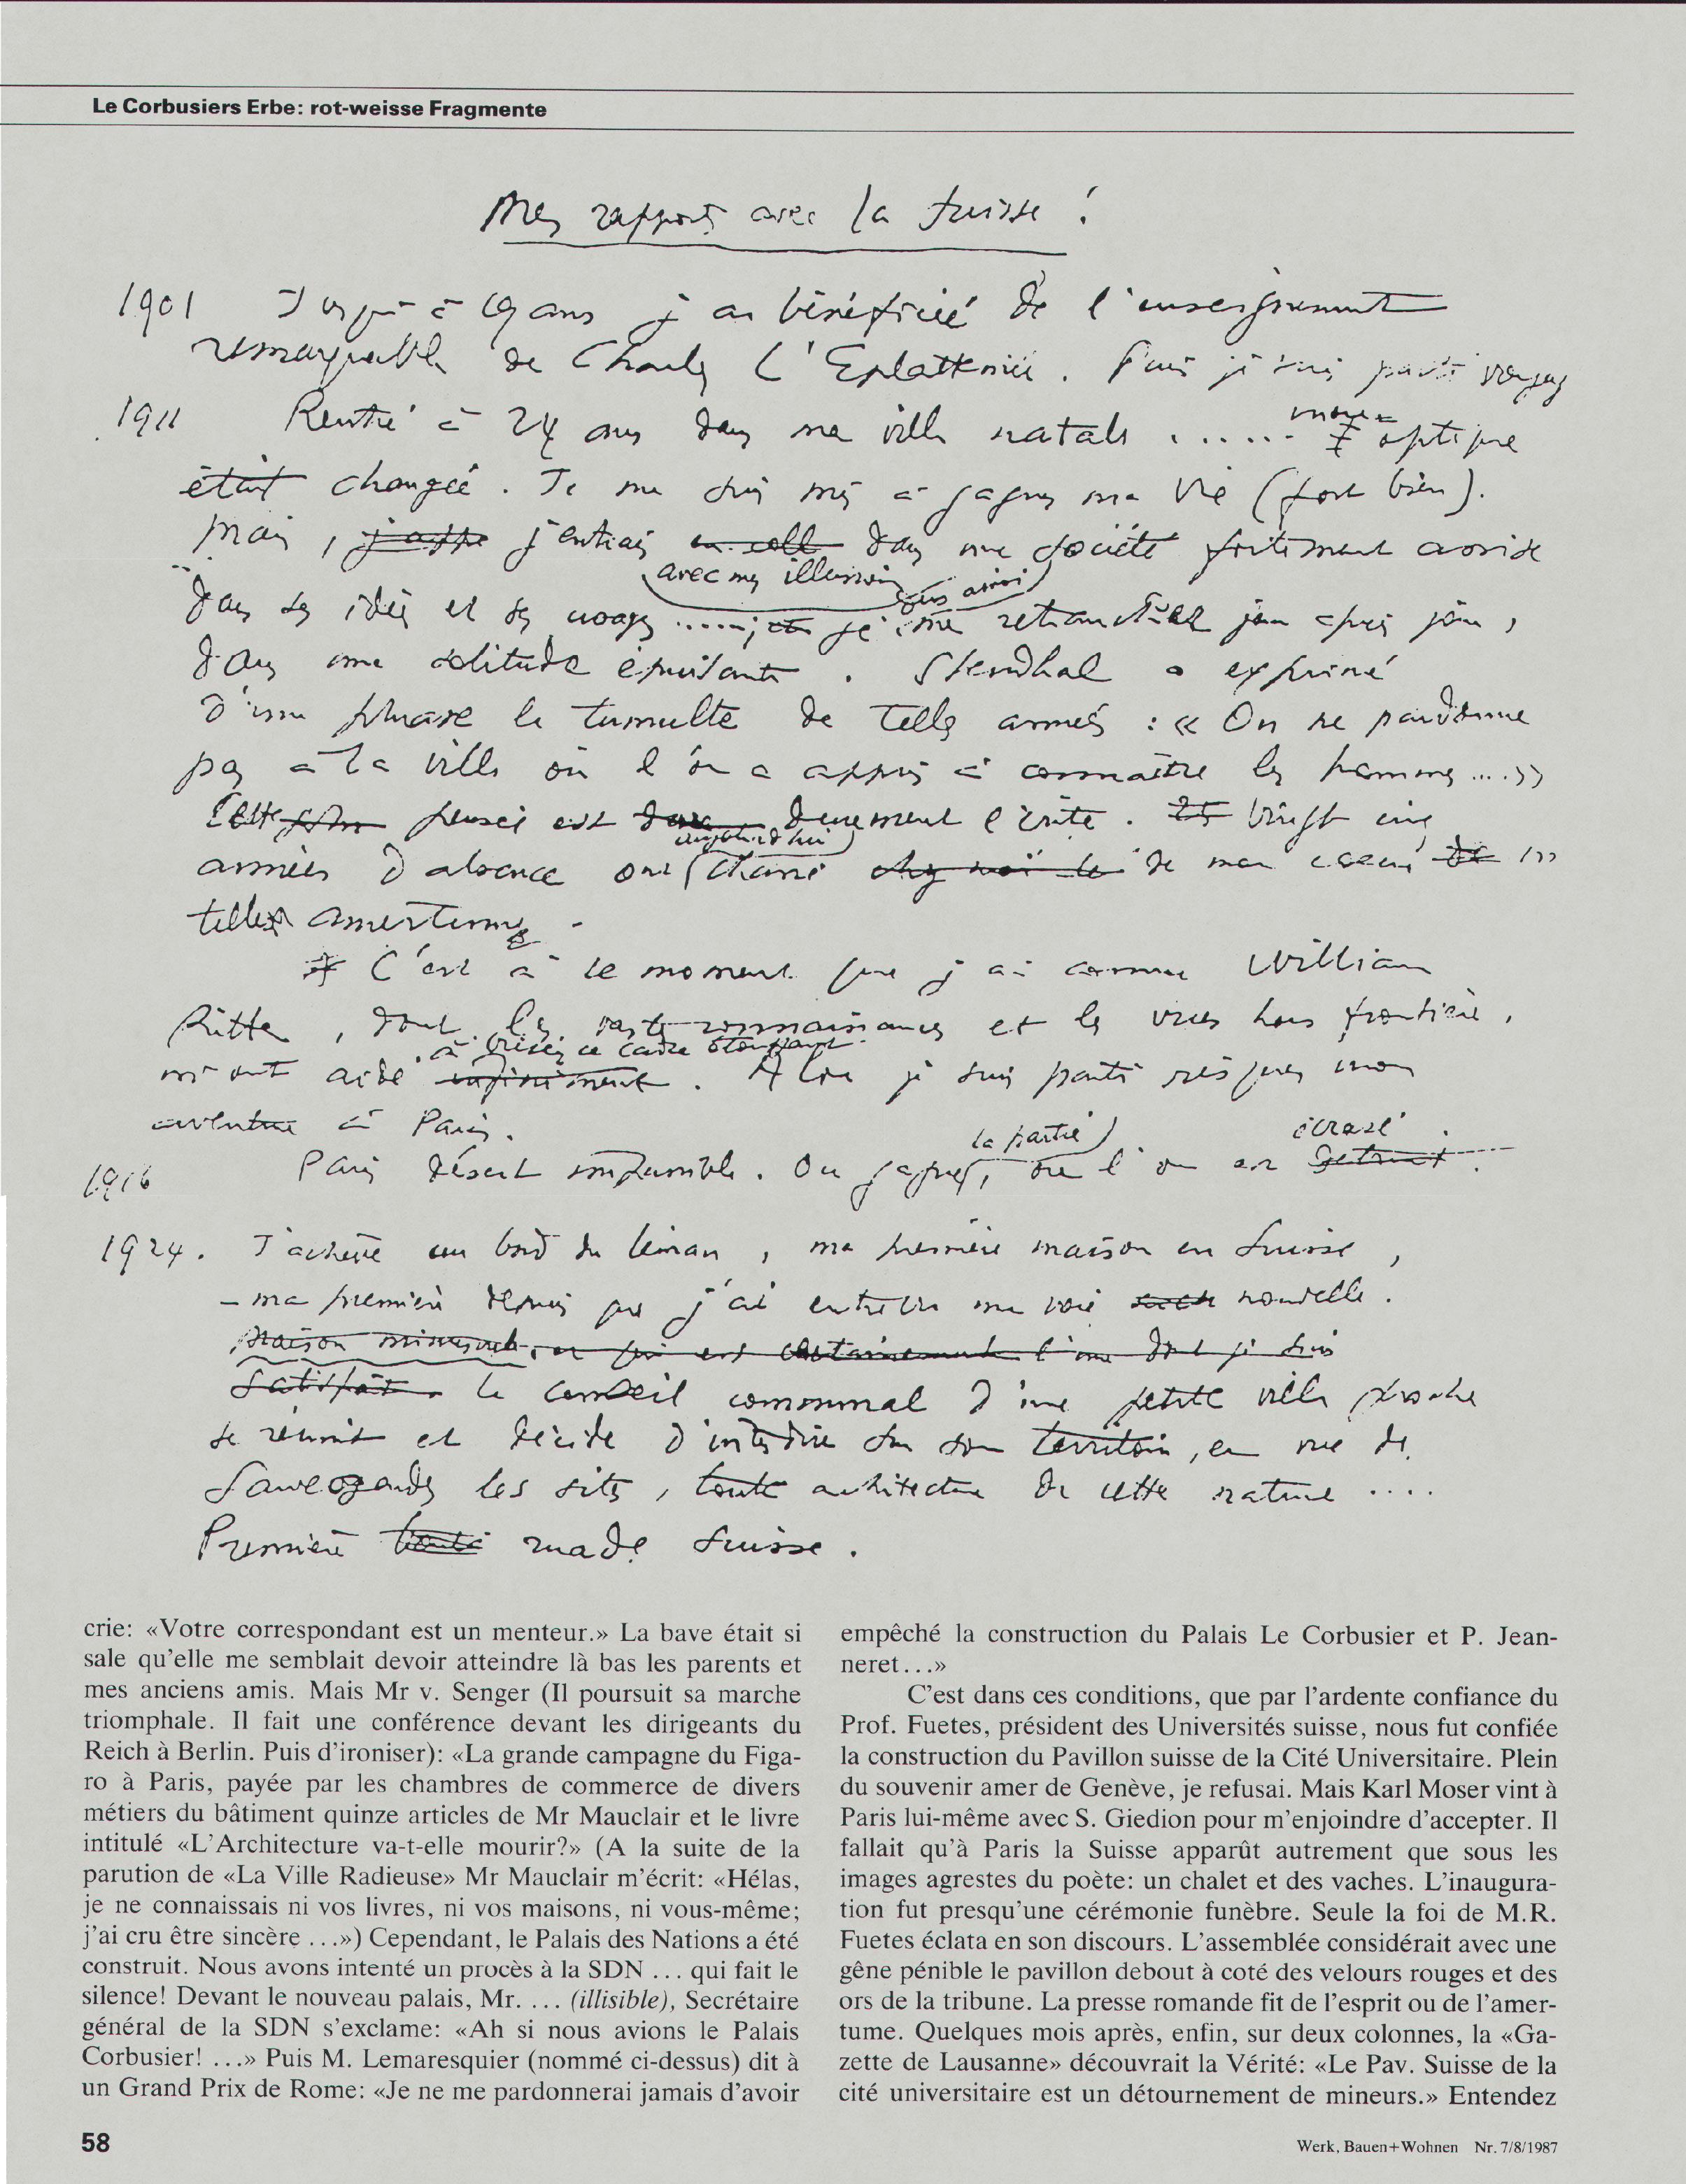 Le Corbusiers Erbe: rot-weisse Fragmente
Mes rapports avec la Suisse!
1901 Jusqu'à 19 ans j'ai bénéficié de l'enseignement
remarquable de Charles L'Eplattenier. Puis je suis parti
1911 Rentré à 24 ans dans ma ville natale ...... mon optique
était changée. Je me suis mis à gagner ma vie (fort bien).
Mais, j'entrais dans une société fortement assise
avec mes illusions
dans ses idées et ses usages ..... je me jour après jour,
dans une solitude épuisante. Stendhal a exprimé
d'une phrase le tumulte de telles années: «On ne pardonne
pas à la ville où l'on a appris à connaître les hommes ....»
Cette pensée est durement écrite. Vingt cinq
aujourd'hui
années d'absence ont chassé de mon coeur les
telles amertumes.
C'est à ce moment que j'ai connu William
Ritter, dont les vastes connaissances et les vues hors frontière,
à briser ce cadre étouffant
m'ont aidé infiniment. Alors je suis parti risquer mon
aventure à Paris.
la partie écrasé
1916 Paris désert impassible. On gagne, ou l'on est détruit.
1924. J'achève au bord du Léman, ma première maison en Suisse,
– ma première depuis que j'ai entrevu une voie nouvelle.
Maison minuscule, ce qui est certainement l'une dont je suis
satisfait. Le conseil communal d'une petite ville proche
se réunit et décide d'interdire sur son territoire, en vue de
sauvegarder les sites, toute architecture de cette nature ....
Première ruade suisse.
crie: «Votre correspondant est un menteur.» La bave était si
sale qu'elle me semblait devoir atteindre là bas les parents et
mes anciens amis. Mais Mr v. Senger (Il poursuit sa marche
triomphale. Il fait une conférence devant les dirigeants du
Reich à Berlin. Puis d'ironiser): «La grande campagne du Figa-
ro à Paris, payée par les chambres de commerce de divers
métiers du bâtiment quinze articles de Mr Mauclair et le livre
intitulé «L'Architecture va-t-elle mourir?» (A la suite de la
parution de «La Ville Radieuse» Mr Mauclair m'écrit: «Hélas,
je ne connaissais ni vos livres, ni vos maisons, ni vous-même;
j'ai cru être sincère ...») Cependant, le Palais des Nations a été
construit. Nous avons intenté un procès à la SDN ... qui fait le
silence! Devant le nouveau palais, Mr. ... (illisible), Secrétaire
général de la SDN s'exclame: «Ah si nous avions le Palais
Corbusier! ...» Puis M. Lemaresquier (nommé ci-dessus) dit à
un Grand Prix de Rome: «Je ne me pardonnerai jamais d'avoir
empêché la construction du Palais Le Corbusier et P. Jean-
neret...»
C'est dans ces conditions, que par l'ardente confiance du
Prof. Fuetes, président des Universités suisse, nous fut confiée
la construction du Pavillon suisse de la Cité Universitaire. Plein
du souvenir amer de Genève, je refusai. Mais Karl Moser vint à
Paris lui-même avec S. Giedion pour m'enjoindre d'accepter. Il
fallait qu'à Paris la Suisse apparût autrement que sous les
images agrestes du poète: un chalet et des vaches. L'inaugura-
tion fut presqu'une cérémonie funèbre. Seule la foi de M.R.
Fuetes éclata en son discours. L'assemblée considérait avec une
gêne pénible le pavillon debout à coté des velours rouges et des
ors de la tribune. La presse romande fit de l'esprit ou de l'amer-
tume. Quelques mois après, enfin, sur deux colonnes, la «Ga-
zette de Lausanne» découvrait la Vérité: «Le Pav. Suisse de la
cité universitaire est un détournement de mineurs.» Entendez
58
Werk, Bauen+Wohnen Nr. 7/8/1987